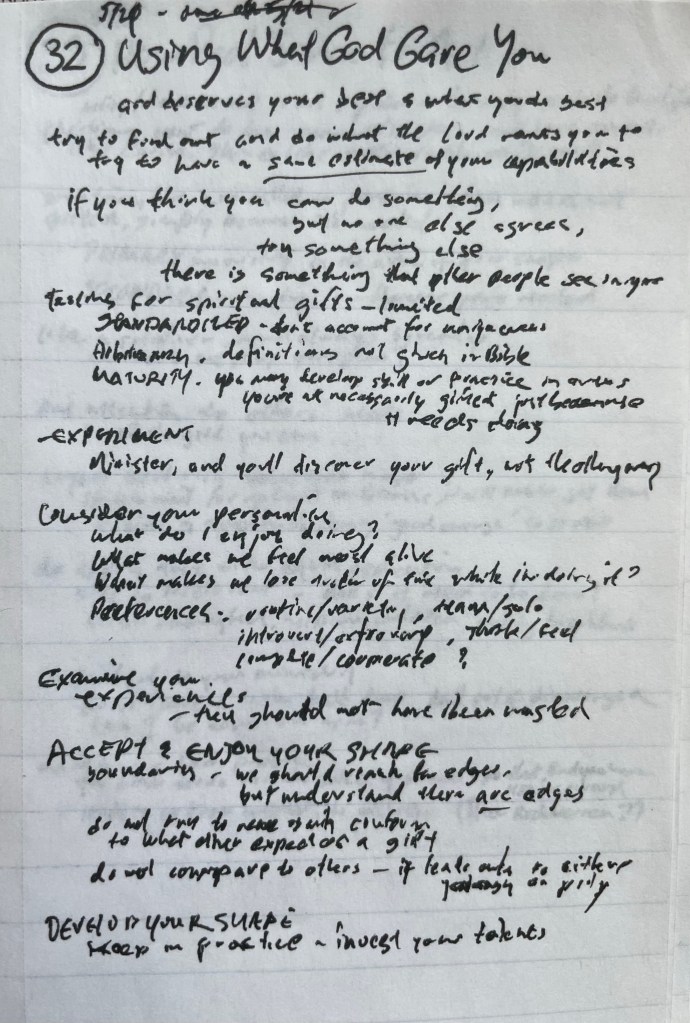 32 Using What God Gave You
God deserves your best & what you do best
try to find out and do what the Lord wants you to
try to have a sane estimate of your capabilities
if you think you can do something,
but no one else agrees,
try something else
there is something that other people see in you
testing for spiritual gifts - limited
STANDARDIZED - don't account for uniqueness
Arbitrary. definitions not given in Bible
MATURITY. you may develop skill or practice in areas
you're not necessarily gifted just because
it needs doing
EXPERIMENT
Minister, and you'll discover your gift, not the other way
Consider your personality
What do I enjoy doing?
What makes me feel most alive
What makes me lose track of time while I'm doing it?
Preferences. routine/variety, team/solo
introvert/extrovert, think/feel
compete/cooperate ?
Examine your
experiences
- they should not have been wasted
ACCEPT & ENJOY YOUR SHAPE
boundaries - we should reach for edges,
but understand there are edges
do not try to
to what other expect as a gift
do not compare to others - it leads only to either
jealousy or pity
DEVELOP YOUR SHAPE
keep in practice - invest your talents